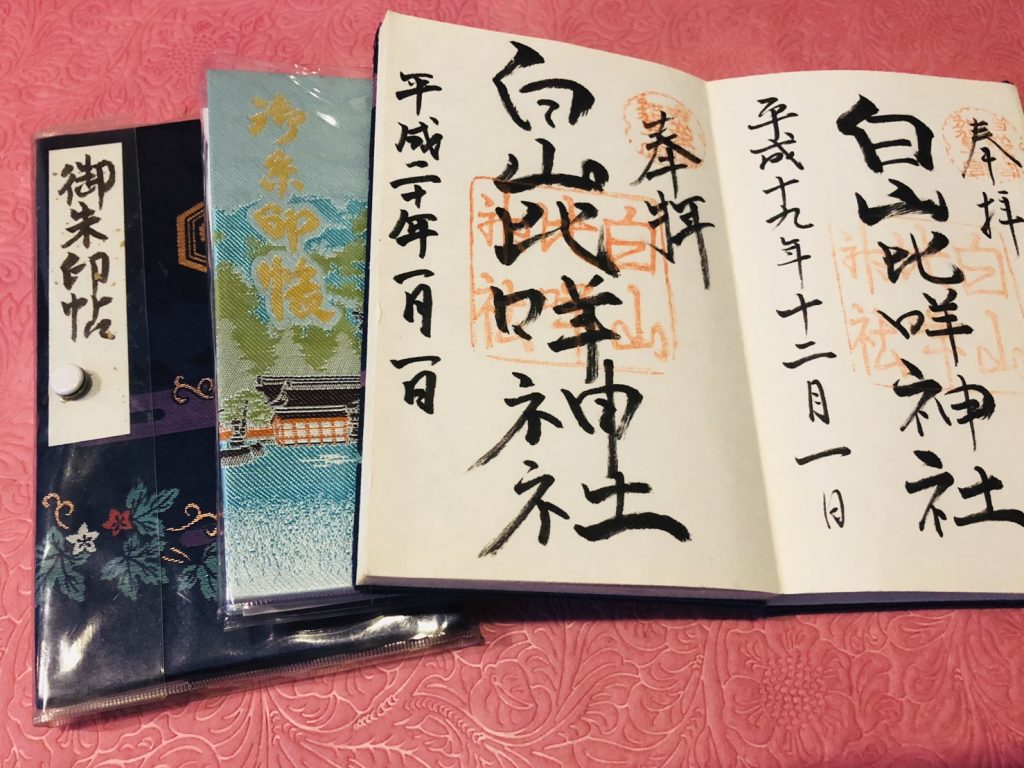 奉拝
白山比咩神社
白山
比咩
神社
平成十九年十二月一日
奉拝
白山比咩神社
白山
比咩
神社
平成二十年一月一日
御朱印帳
御朱印帖